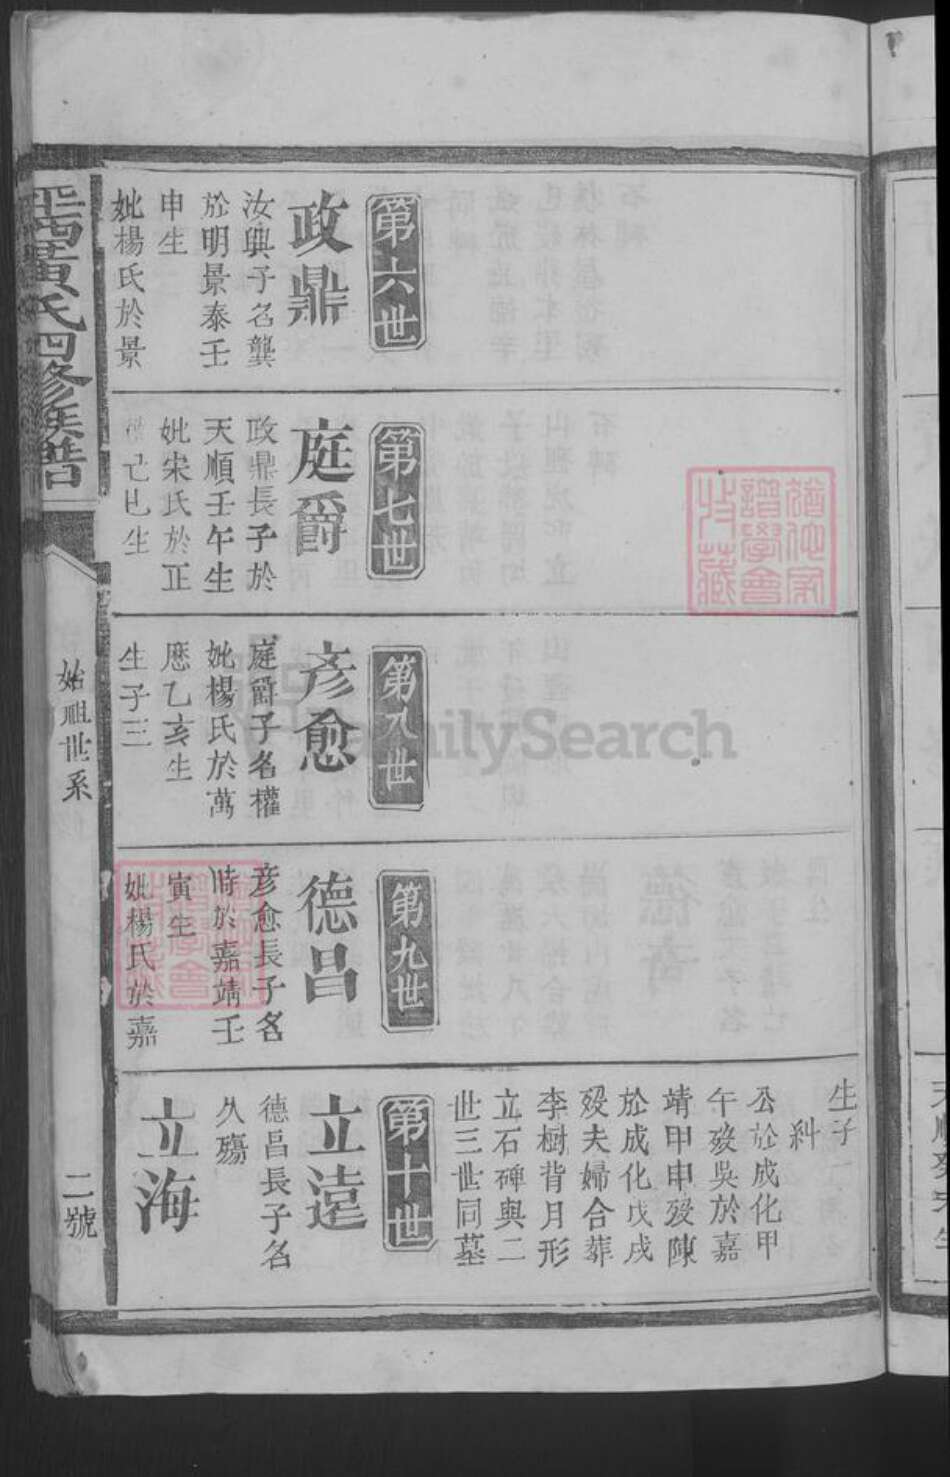 第六世
政鼎
汝興子名龔
於明景泰壬
申生
妣楊氏於景
第七世
庭爵
政鼎長子於
天順壬午生
妣宋氏於正
已巳生
第八世
彥愈
庭爵子名權
妣楊氏於萬
應乙亥生
生子三
第九世
德昌
彥愈長子名
時於嘉靖壬
寅生
妣楊氏於嘉
生子
糾
公於成化甲
午歿吳於嘉
靖甲申歿陳
於成化戊戌
歿夫婦合葬
李樹背月形
立石碑與二
世三世同墓
第十世
立遠
德昌長子名
久殤
立海
黃氏四修族譜
始祖世系
二號
FamilySearch
譜學會
收藏